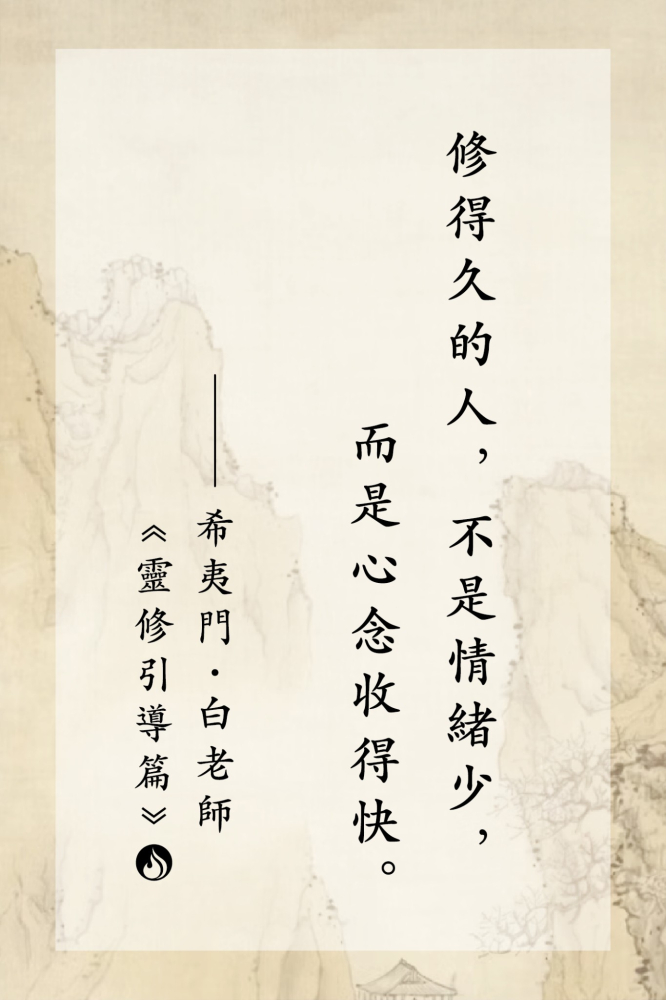 修得久的人，不是情緒少，
而是心念收得快。
——希夷門·白老師
《靈修引導篇》